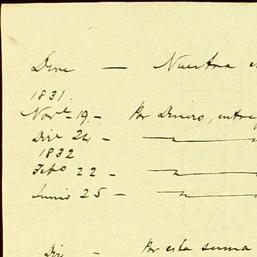 Deve — Nuestra
1831.
Nov.e 19 — Por Dinero, entre
Dic.e 24 — "
1832
Feb.o 22 — "
Junio 25 — "
Por esta suma